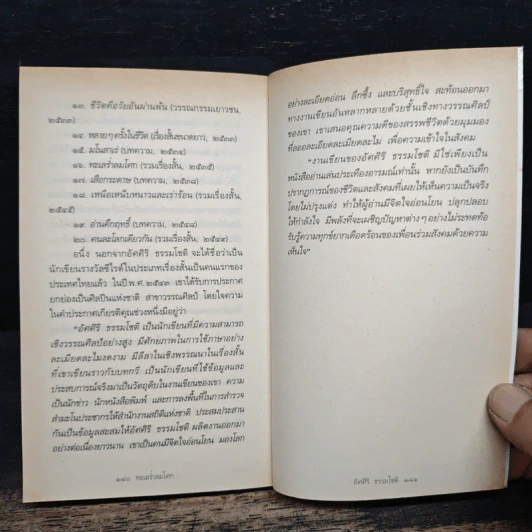 ๑๓. ชีวิตคือวัยอันผ่านพ้น (วรรณกรรมเยาวชน,
๒๕๓๓)
๑๔. พลายๆ ครั้งในชีวิต (เรื่องสั้นขนาดยาว, ๒๕๓๓)
๑๕. มโนสาเร่ (บทความ, ๒๕๓๔)
๑๖. ทะเลร่ำลมโศก (รวมเรื่องสั้น, ๒๕๓๕)
๑๗. เสือกระดาษ (บทความ, ๒๕๓๘)
๑๘. เหนือเหนีบหนาวและเร่าร้อน (รวมเรื่องสั้น,
๒๕๔๕)
๑๙. อ่านตึกฤทธิ์ (บทความ, ๒๕๔๘)
๒๐. คนละโลกเดียวกัน (รวมเรื่องสั้น, ๒๕๔๙)
อนึ่ง นอกจากอัศศิริ ธรรมโชติ จะได้ชื่อว่าเป็น
นักเขียนรางวัลซีไรต์ในประเภทเรื่องสั้นเป็นคนแรกของ
ประเทศไทยแล้ว ในปีพ.ศ.๒๕๔๓ เขาได้รับการประกาศ
ยกย่องเป็นศิลปินแห่งชาติ สาขาวรรณศิลป์ โดยใจความ
ในคำประกาศเกียรติคุณช่วงหนึ่งมีอยู่ว่า
"อัศศิริ ธรรมโชติ เป็นนักเขียนที่มีความสามารถ
เชิงวรรณศิลป์อย่างสูง มีศักยภาพในการใช้ภาษาอย่าง
ละเมียดละไมงดงาม มีลีลาในเชิงพรรณนาในเรื่องสั้น
ที่เขาเขียนราวกับบทกวี เป็นนักเขียนที่ใช้ข้อมูลและ
ประสบการณ์จริงมาเป็นวัตถุดิบในงานเขียนของเขา ความ
เป็นนักข่าว นักหนังสือพิมพ์ และการลงพื้นที่ในการสำรวจ
สำมะโนประชากรให้สำนักงานสถิติแห่งชาติ ประสมประสาน
กันเป็นข้อมูลสะสมให้อัศศิริ ธรรมโชติ ผลิตงานออกมา
อย่างต่อเนื่องยาวนาน เขาเป็นคนมีจิตใจอ่อนโยน มองโลก
๑๘๐ ทะเลร่ำลมโศก
อย่างละเอียดอ่อน ลึกซึ้ง และบริสุทธิ์ใจ สะท้อนออกมา
ทางงานเขียนอันหลากหลายด้วยชั้นเชิงทางวรรณศิลป์
ของเขา เขาเสนอคุณความดีของสรรพชีวิตด้วยมุมมอง
ที่ลออละเอียดละเมียดละไม เพื่อความเข้าใจในสังคม
"งานเขียนของอัศศิริ ธรรมโชติ มิใช่เพียงเป็น
หนังสืออ่านเล่นประเทืองอารมณ์เท่านั้น หากยังเป็นบันทึก
ปรากฏการณ์ของชีวิตและสังคมที่เผยให้เห็นความเป็นจริง
โดยไม่ปรุงแต่ง ทำให้ผู้อ่านมีจิตใจอ่อนโยน ปลุกปลอบ
ให้กำลังใจ มีพลังที่จะเผชิญปัญหาต่างๆ อย่างไม่ระทดท้อ
รับรู้ความทุกข์ยากเดือดร้อนของเพื่อนร่วมสังคมด้วยความ
เห็นใจ"
อัศศิริ ธรรมโชติ ๑๘๑